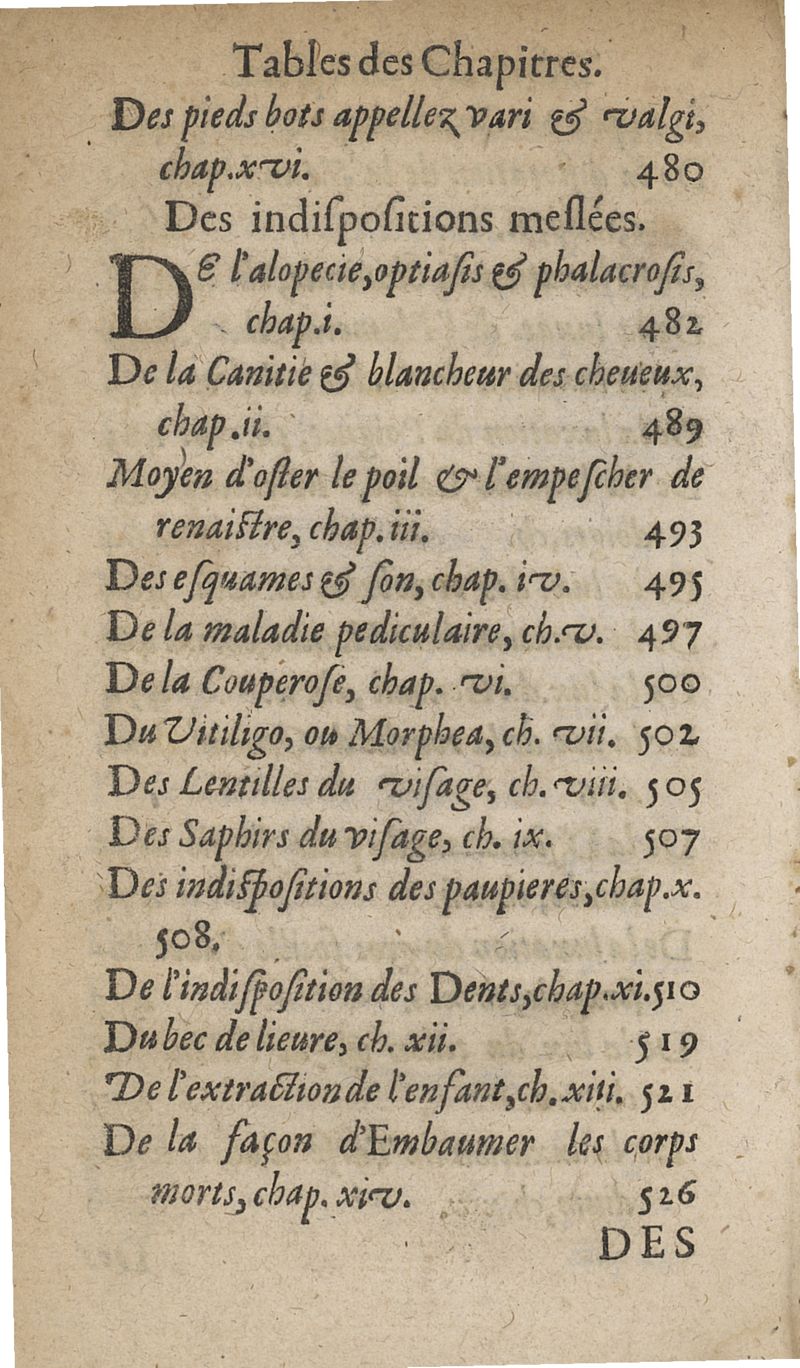 Tables des Chapitres.
Des pieds bots appellez vari & valgi,
chap.xvi. 480
Des indiſpoſitions meſlées.
DE l'alopecie,optiaſis & phalacroſis,
chap.i. 482
De la Canitie & blancheur des cheueux,
chap.ii. 489
Moyen d'oſter le poil & l'empeſcher de
renaiſtre, chap.iii. 493
Des eſquames & ſon, chap. iv. 495
De la maladie pediculaire, ch.v. 497
De la Couperoſe, chap. vi. 500
Du Vitiligo, ou Morphea, ch. vii. 502
Des Lentilles du viſage, ch. viii. 505
Des Saphirs du viſage, ch. ix. 507
Des indiſpoſitions des paupieres,chap.x.
508.
De l'indiſpoſition des Dents,chap.xi.510
Du bec de lieure, ch. xii. 519
De l'extraction de l'enfant,ch.xiii. 521
De la façon d'Embaumer les corps
morts, chap. xiv. 526
DES